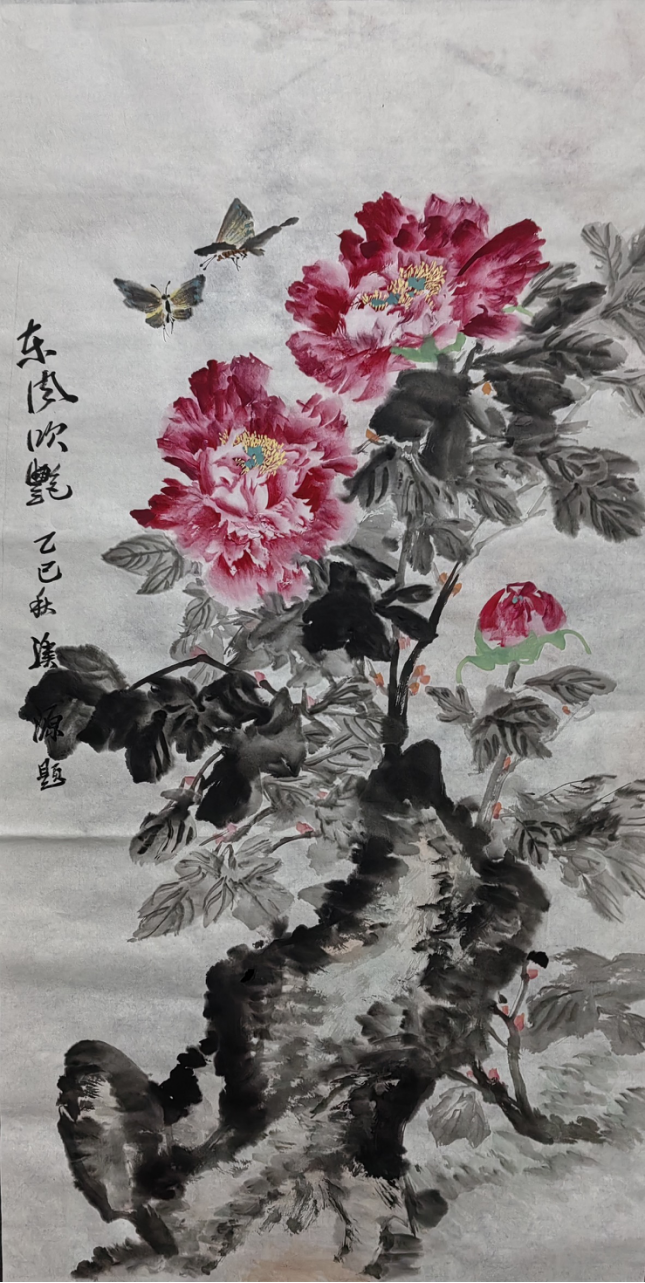 东风吹艳乙巳秋溪源题